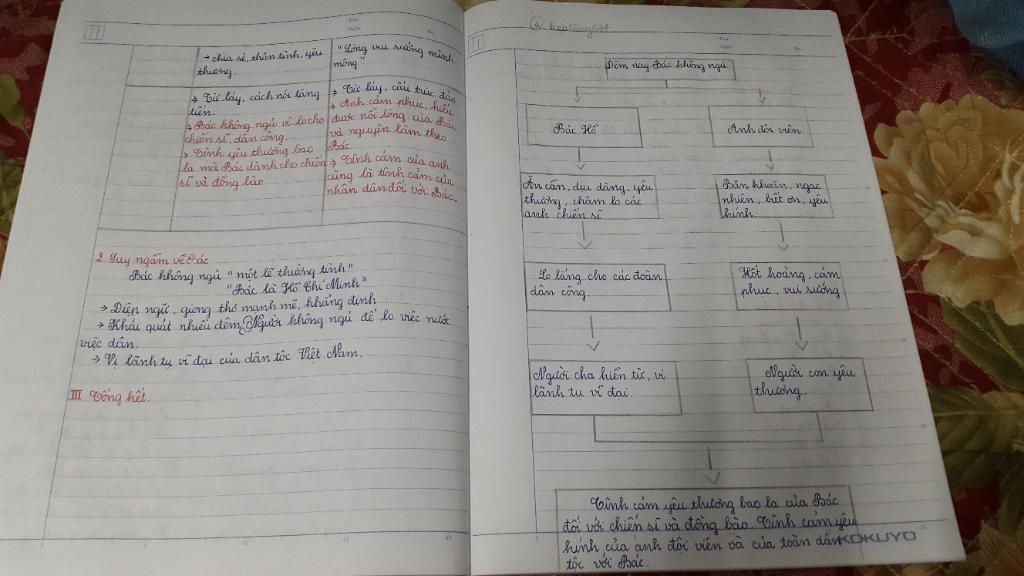 → chia sẻ, thân tình, yêu
thương.
"Lòng vui sướng mênh
mông"
→ Từ láy, cách nói tăng
tiến.
→ Bác không ngủ vì lo cho
chiến sĩ, dân công.
→ Tình yêu thương bao
la mà Bác dành cho chiến
sĩ và đồng bào
→ Từ láy, cấu trúc đảo
→ Anh cảm phục, hiểu
được nỗi lòng của Bác
và nguyện làm theo
Bác
→ Tình cảm của anh
cũng là tình cảm của
nhân dân đối với Bác.
2. Suy ngẫm về Bác
Bác không ngủ "một lẽ thường tình"
"Bác là Hồ Chí Minh"
→ Điệp ngữ, giọng thơ mạnh mẽ, khẳng định
→ Khái quát nhiều đêm Người không ngủ để lo việc nước
việc dân.
→ Vị lãnh tụ vĩ đại của dân tộc Việt Nam.
III. Tổng kết.
Thứ
Ngày
No.
Thứ
Ngày
No.
Đêm nay Bác không ngủ
Bác Hồ
Anh đội viên
Ân cần, dịu dàng, yêu
thương, chăm lo các
anh chiến sĩ
Băn khoăn, ngạc
nhiên, biết ơn, yêu
kính
Lo lắng cho các đoàn
dân công.
Hốt hoảng, cảm
phục, vui sướng
Người cha hiền từ, vị
lãnh tụ vĩ đại.
Người con yêu
thương..
Tình cảm yêu thương bao la của Bác
đối với chiến sĩ và đồng bào. Tình cảm yêu
kính của anh đội viên và của toàn dân
tộc với Bác.
KOKUYO